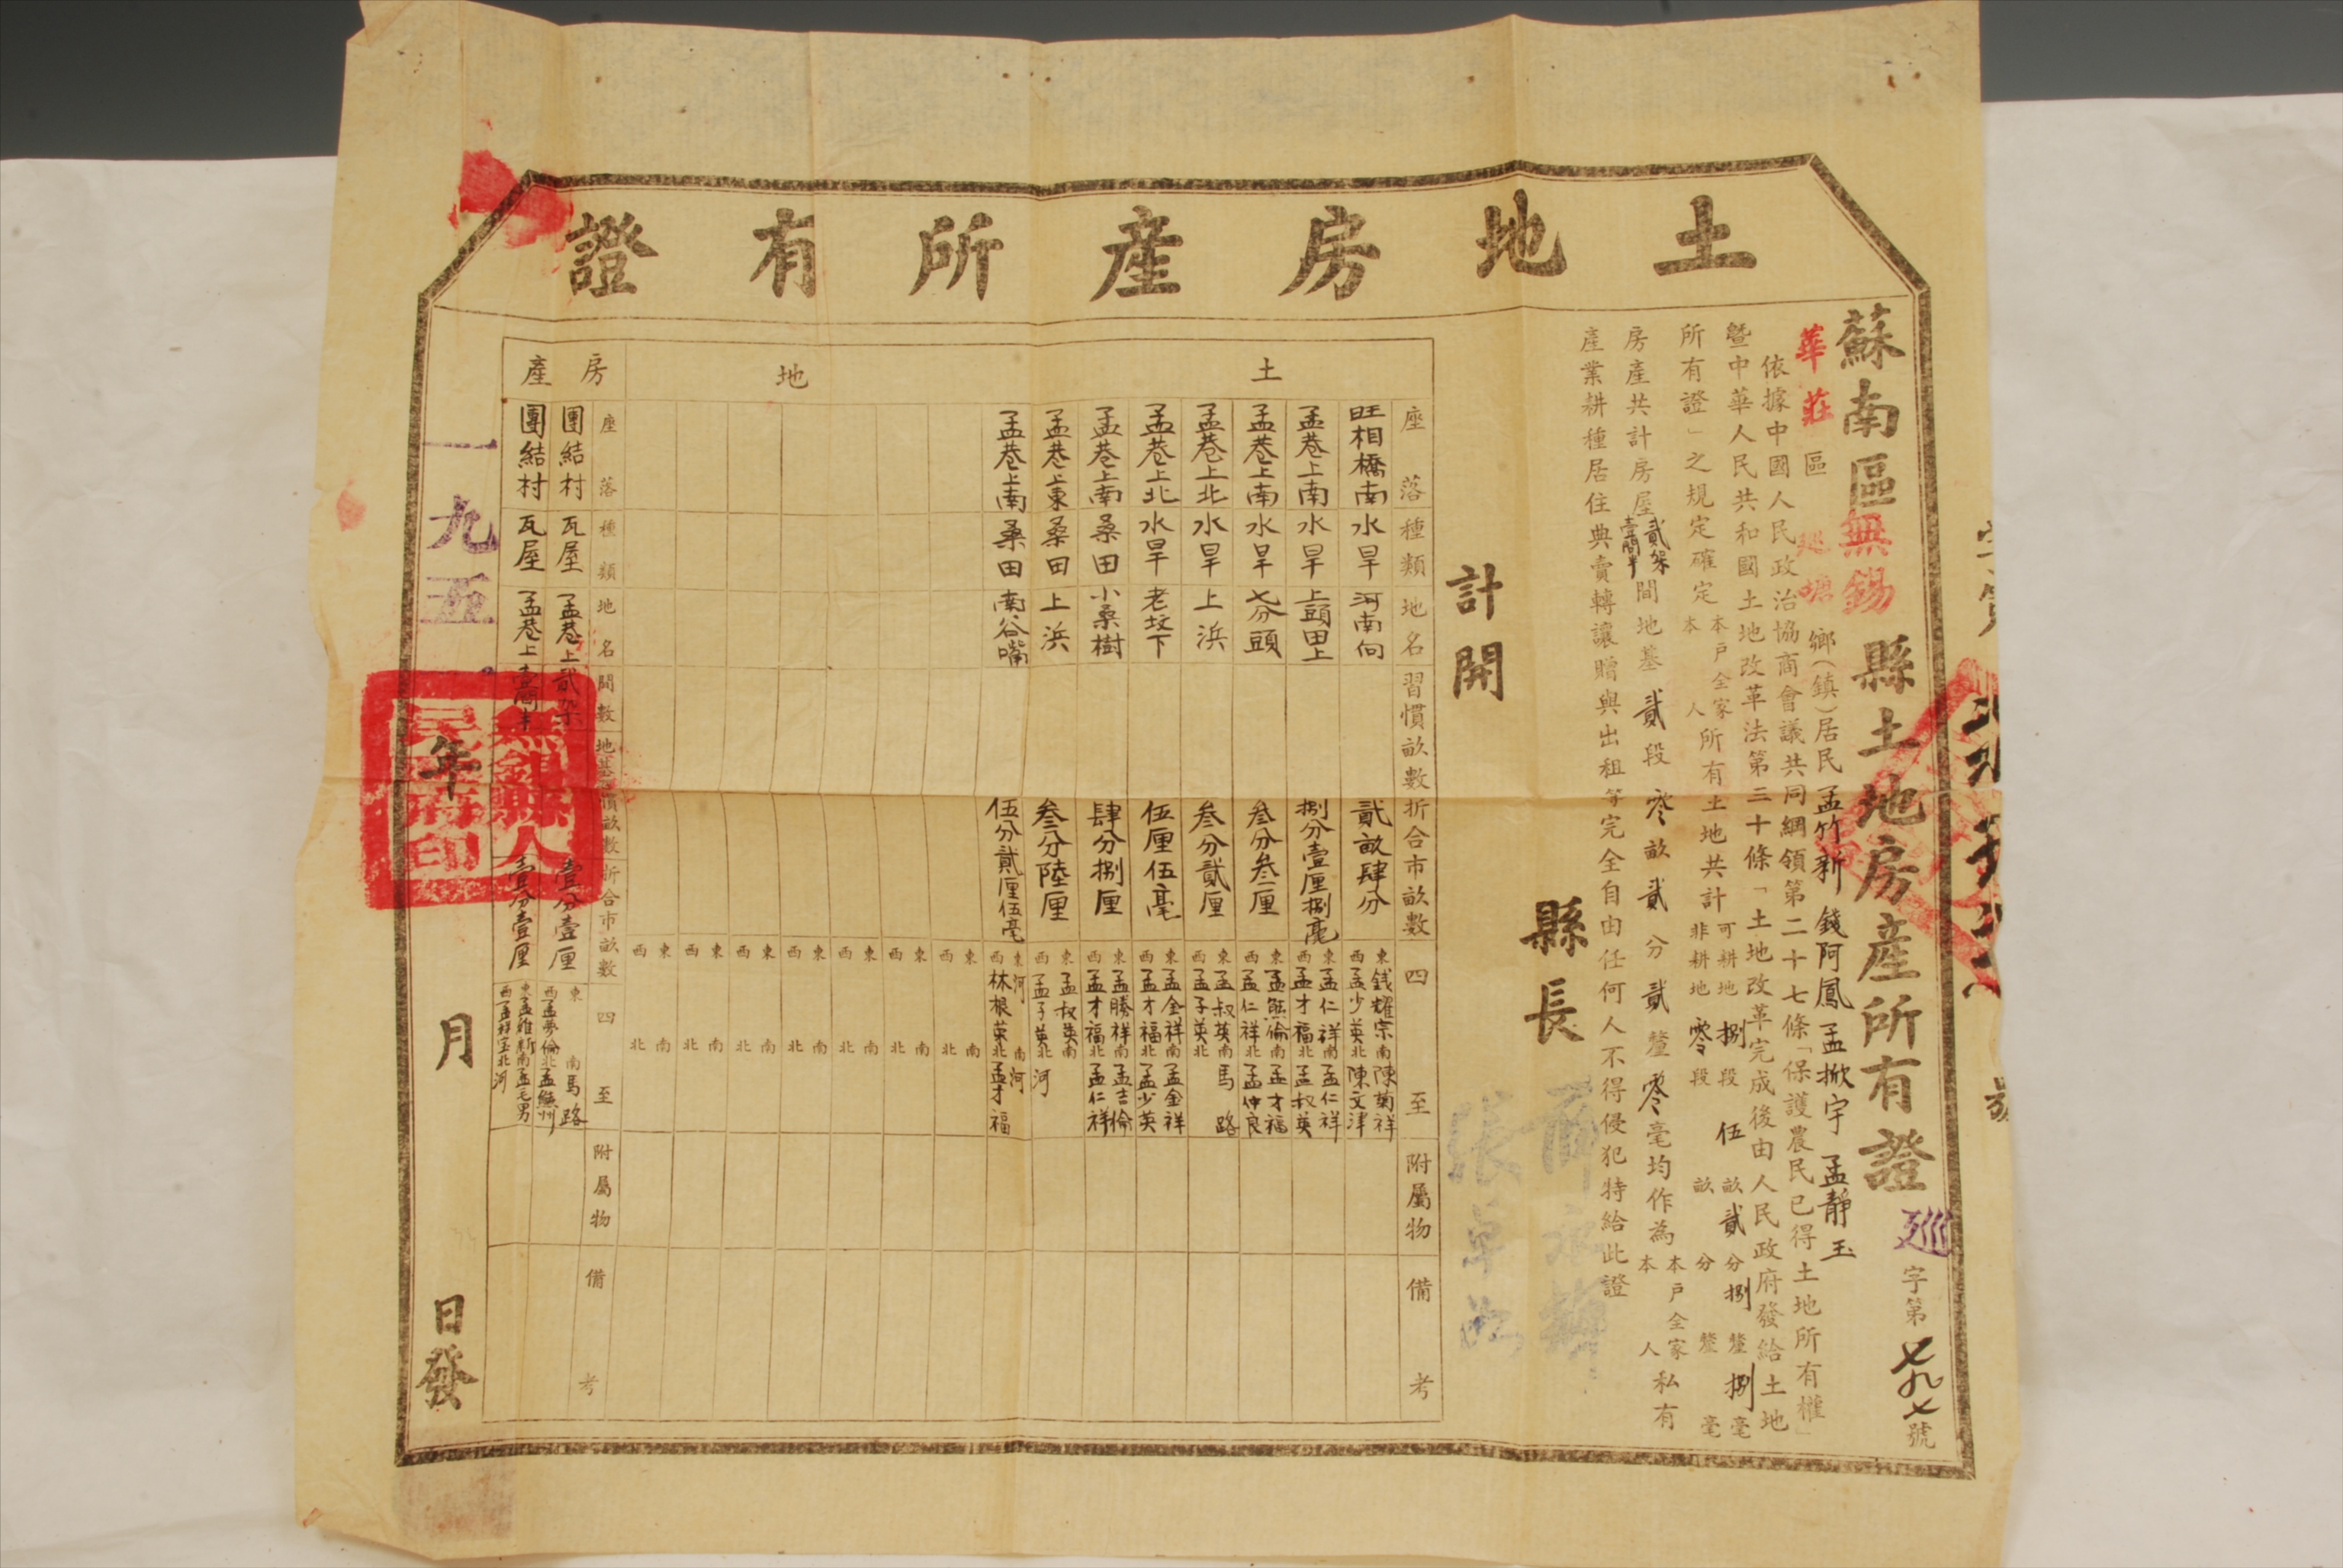 土地房產所有證
蘇南區無錫縣土地房產所有證
巡字第七九七號
華莊區巡塘鄉(鎮)居民孟竹新 錢阿鳳 孟掀宇 孟靜玉
依據中國人民政治協商會議共同綱領第二十七條「保護農民已得土地所有權」
暨中華人民共和國土地改革法第三十條「土地改革完成後由人民政府發給土地
所有證」之規定確定本戶全家本人所有土地共計可耕地捌段伍畝貳分捌釐捌毫非耕地零段畝分釐毫
房產共計房屋貳架壹間半間地基貳段零畝貳分貳釐零毫均作為本戶全家本人私有
產業耕種居住典賣轉讓贈與出租等完全自由任何人不得侵犯特給此證
縣長
計開
土地
座落 種類 地名 習慣畝數 折合市畝數 四至 附屬物 備考
旺相橋南 水旱 河南向 貳畝肆分 東錢耀宗 南陳菊祥 西孟少英 北陳文津
孟巷上南 水旱 上頭田上 捌分壹厘捌毫 東孟仁祥 南孟仁祥 西孟才福 北孟叔英
孟巷上南 水旱 七分頭 叁分叁厘 東孟熊倫 南孟才福 西孟仁祥 北孟仲良
孟巷上北 水旱 上浜 叁分貳厘 東孟叔英 南馬路 西孟子英 北
孟巷上北 水旱 老坟下 伍厘伍毫 東孟金祥 南孟金祥 西孟才福 北孟少英
孟巷上南 桑田 小桑樹 肆分捌厘 東孟勝祥 南孟吉倫 西孟才福 北孟仁祥
孟巷上東 桑田 上浜 叁分陸厘 東孟叔英 南 西孟子英 北河
孟巷上南 桑田 南谷嘴 伍分貳厘伍毫 東河 南河 西林根英 北孟才福
東 西 南 北
東 西 南 北
東 西 南 北
東 西 南 北
東 西 南 北
東 西 南 北
東 西 南 北
房產
座落 種類 地名 間數 地基習慣畝數 折合市畝數 四至 附屬物 備考
團結村 瓦屋 孟巷上 貳架 壹分壹厘 東 南馬路 西孟夢倫 北孟
團結村 瓦屋 孟巷上 壹間半 壹分壹厘 東孟維新 南孟毛男 西孟祥宝 北河
一九五一年 月 日發
無錫縣人民政府印